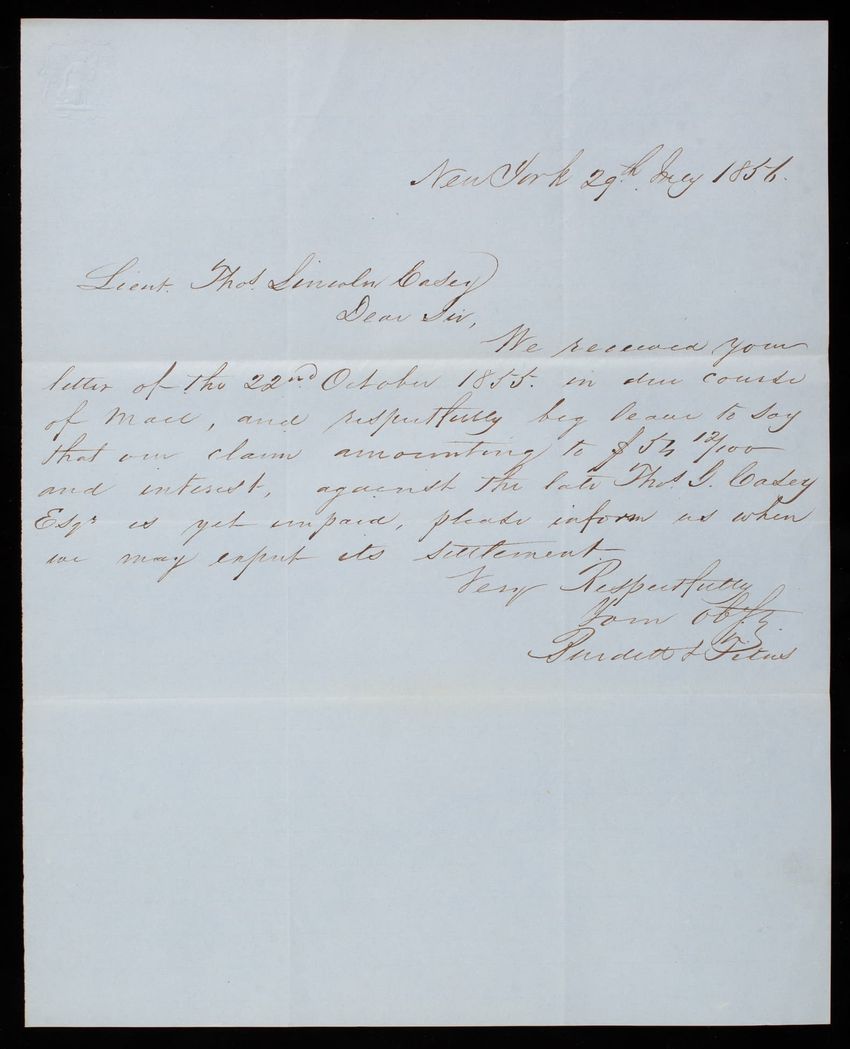 New York 29th July 1856.
Lieut. Thos. Lincoln Casey
Dear Sir,
We received your
letter of the 22nd October 1855. in due course
of Mail, and respectfully beg leave to say
that our claim amounting to $ 54 12/100
and interest, against the late Thos G. Casey
Esqr is yet unpaid, please inform us when
we may expect its settlement.
Very Respectfully
Your Obt
Burdett & Titus